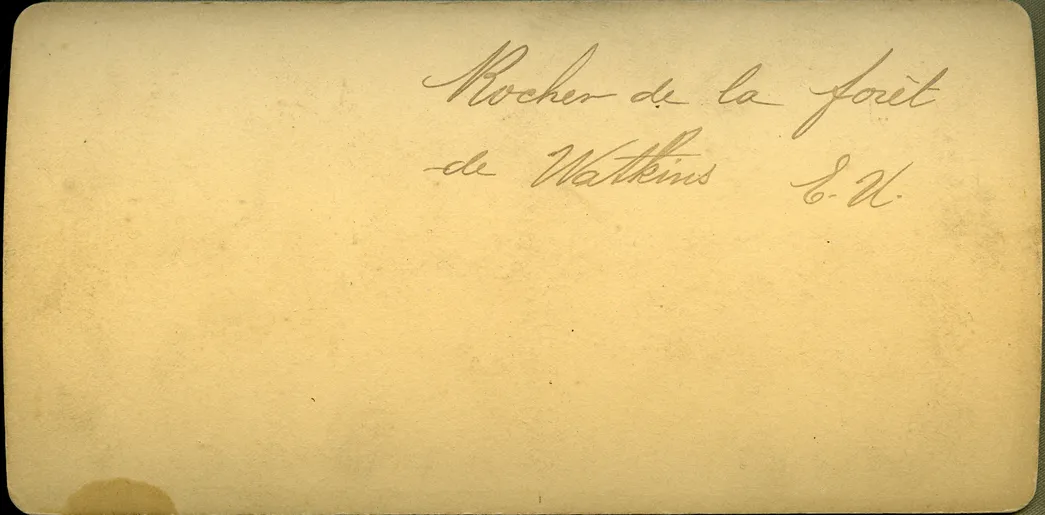 Rocher de la forêt
de Watkins E. U.